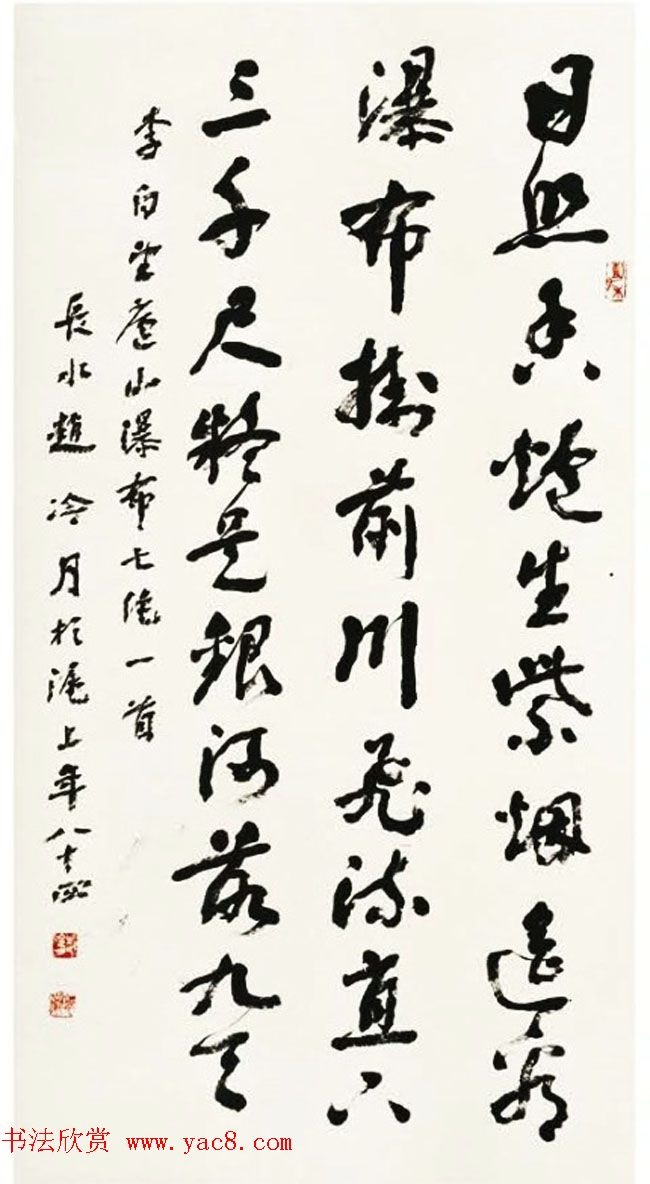 日照香爐生紫烟遥看
瀑布掛前川飛流直下
三千尺疑是銀河落九天
李白望廬山瀑布七絕一首
長水趙冷月於滬上年八十四
书法欣赏 www.yac8.com